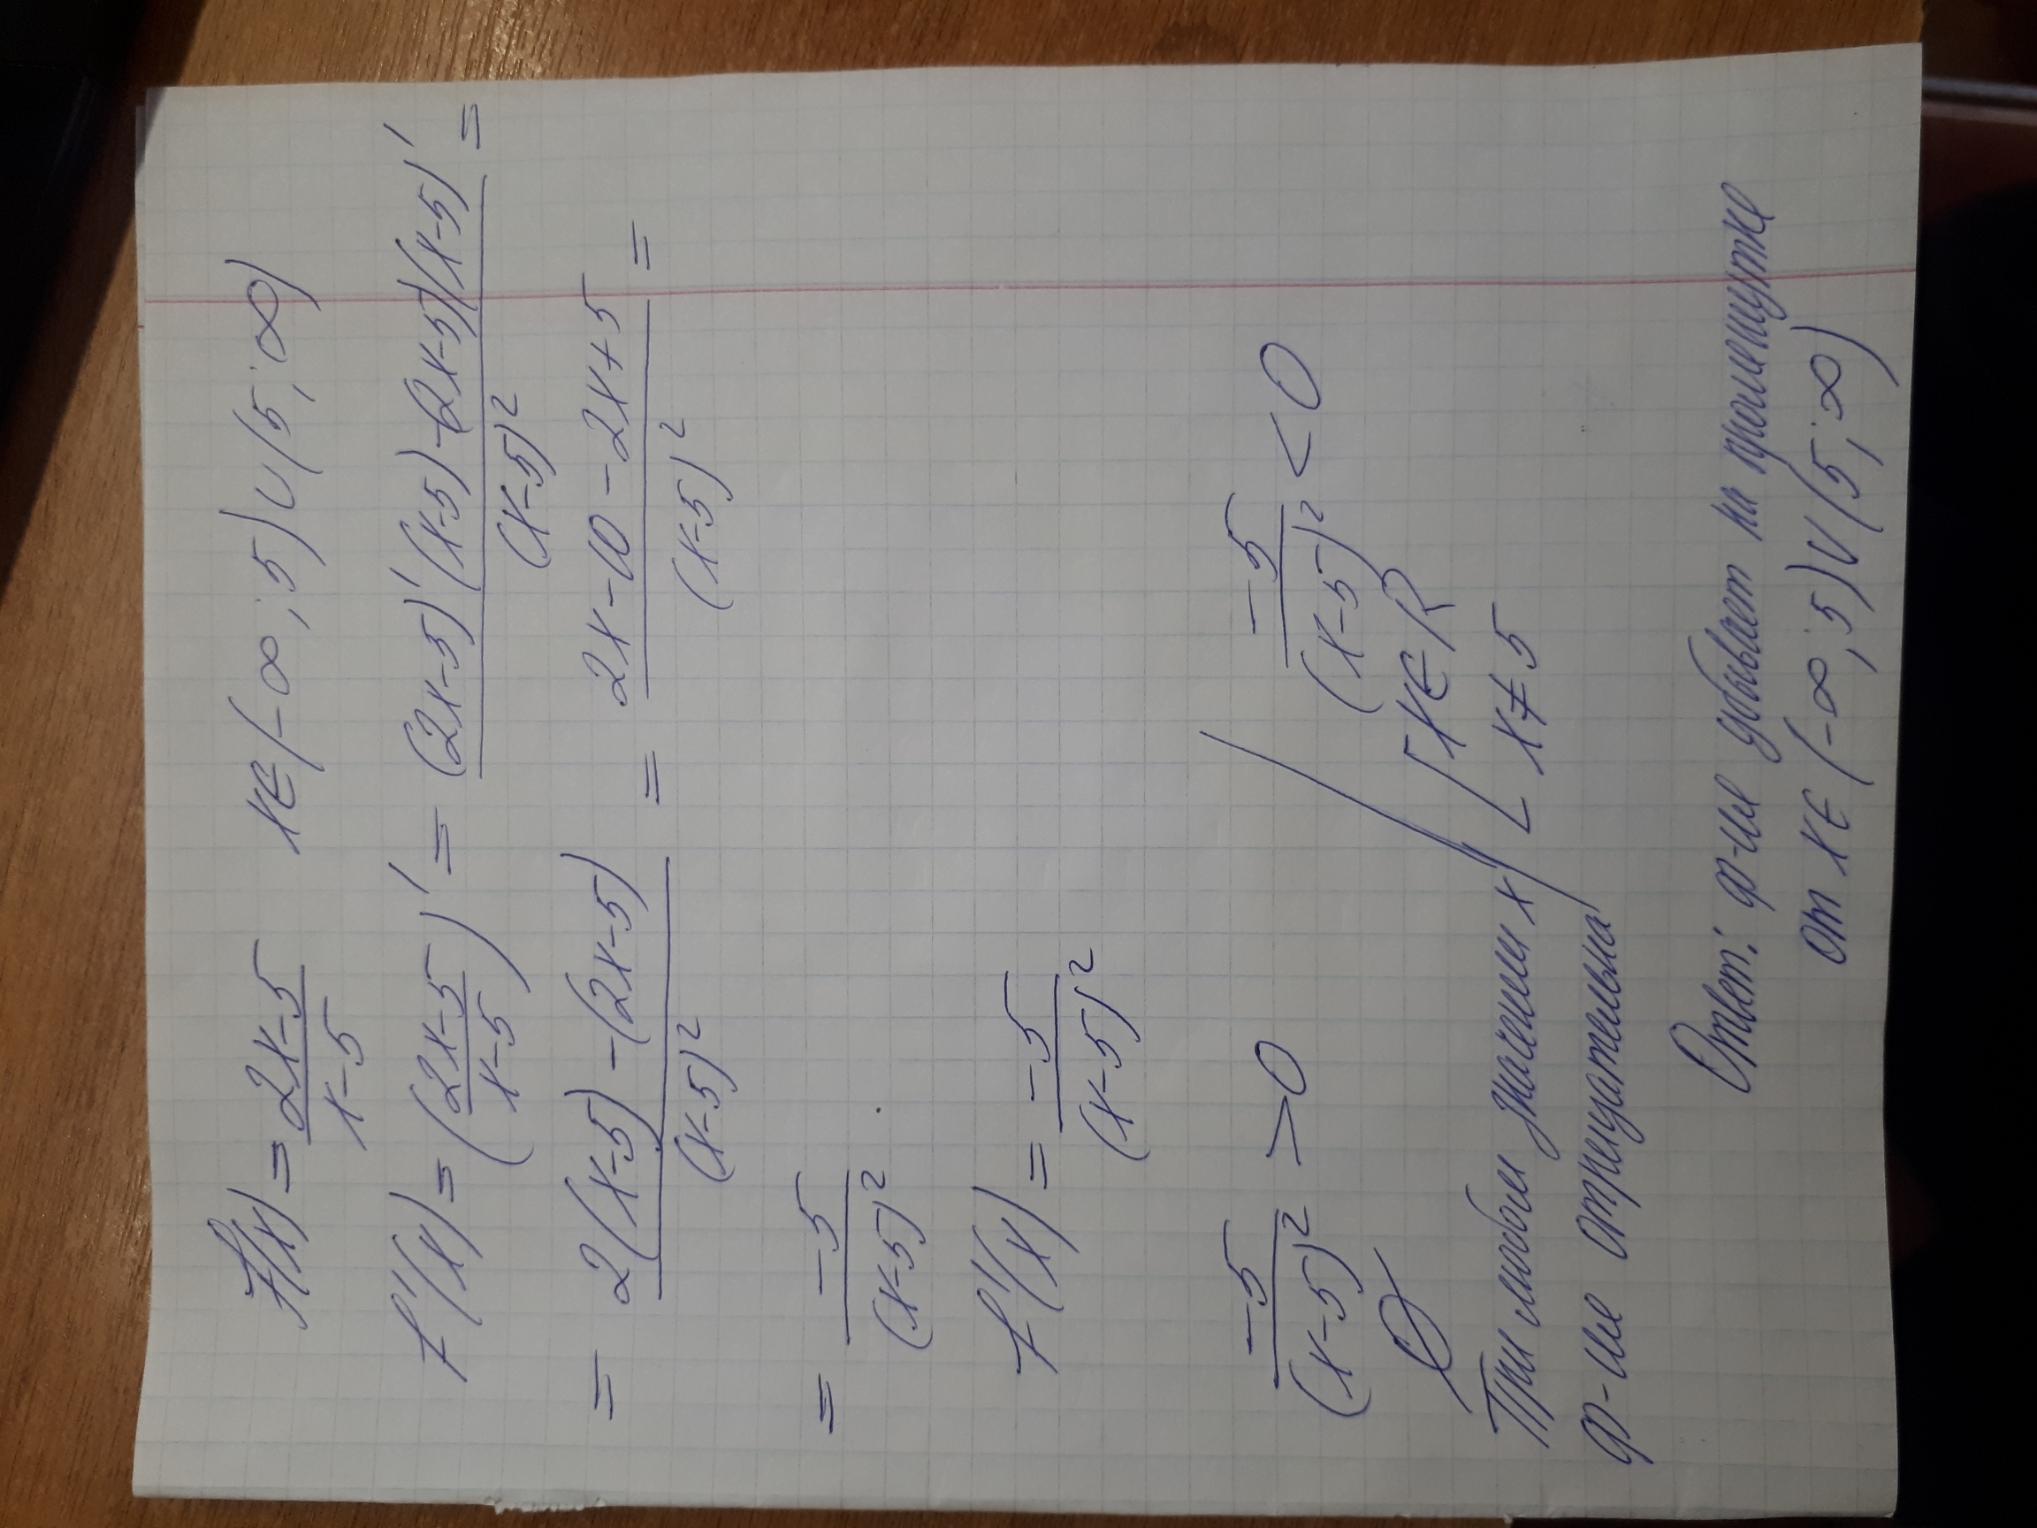 f(x) = (2x-5)/(x-5) x∈(-∞; 5)∪(5; ∞)
f'(x) = ((2x-5)/(x-5))' = ((2x-5)'(x-5)-(2x-5)(x-5)')/(x-5)² =
= (2(x-5)-(2x-5))/(x-5)² = (2x-10-2x+5)/(x-5)² =
= -5/(x-5)²
f'(x) = -5/(x-5)²
-5/(x-5)² > 0 -5/(x-5)² < 0
∅ [x∈R
При любом значении x x≠5
ф-ия отрицательна
Ответ: ф-ия убывает на промежутке
от x∈(-∞; 5)∪(5; ∞)